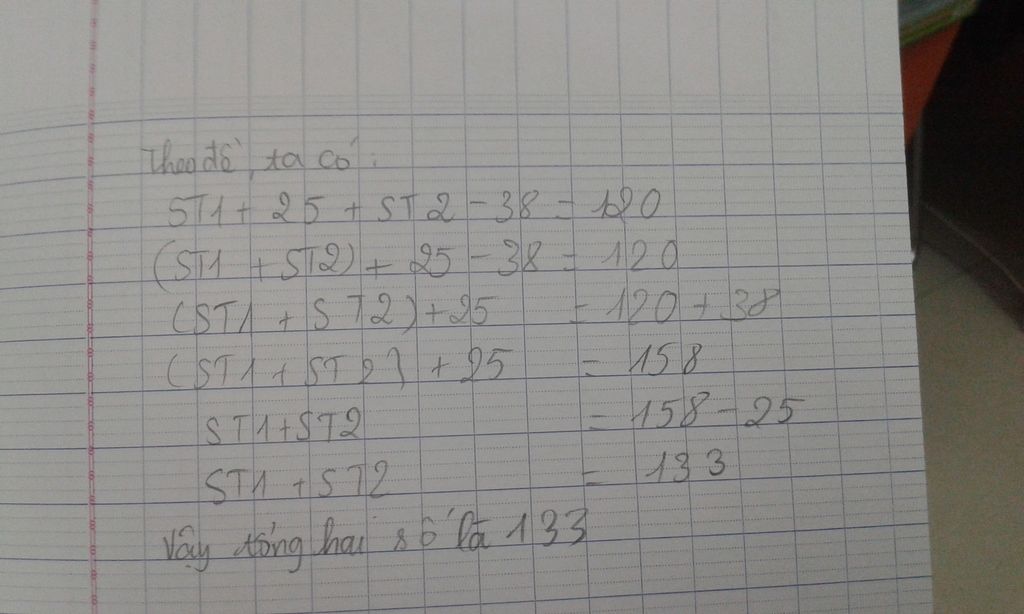 Theo đề, ta có:
ST1 + 25 + ST2 - 38 = 120
(ST1 + ST2) + 25 - 38 = 120
(ST1 + ST2) + 25 = 120 + 38
(ST1 + ST2) + 25 = 158
ST1+ST2 = 158 - 25
ST1 + ST2 = 133
Vậy tổng hai số là 133